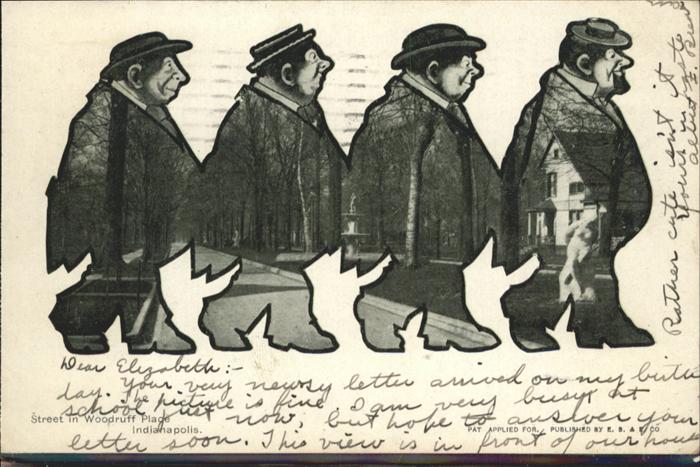 Dear Elizabeth:-
Your very newsy letter arrived on my birth
day. The picture is fine. I am very busy at
school just now, but hope to answer your
letter soon. This view is in front of our house
Street in Woodruff Place
Indianapolis.
PAT APPLIED FOR. PUBLISHED BY E. B. & E. CO
Rather cute isn't it